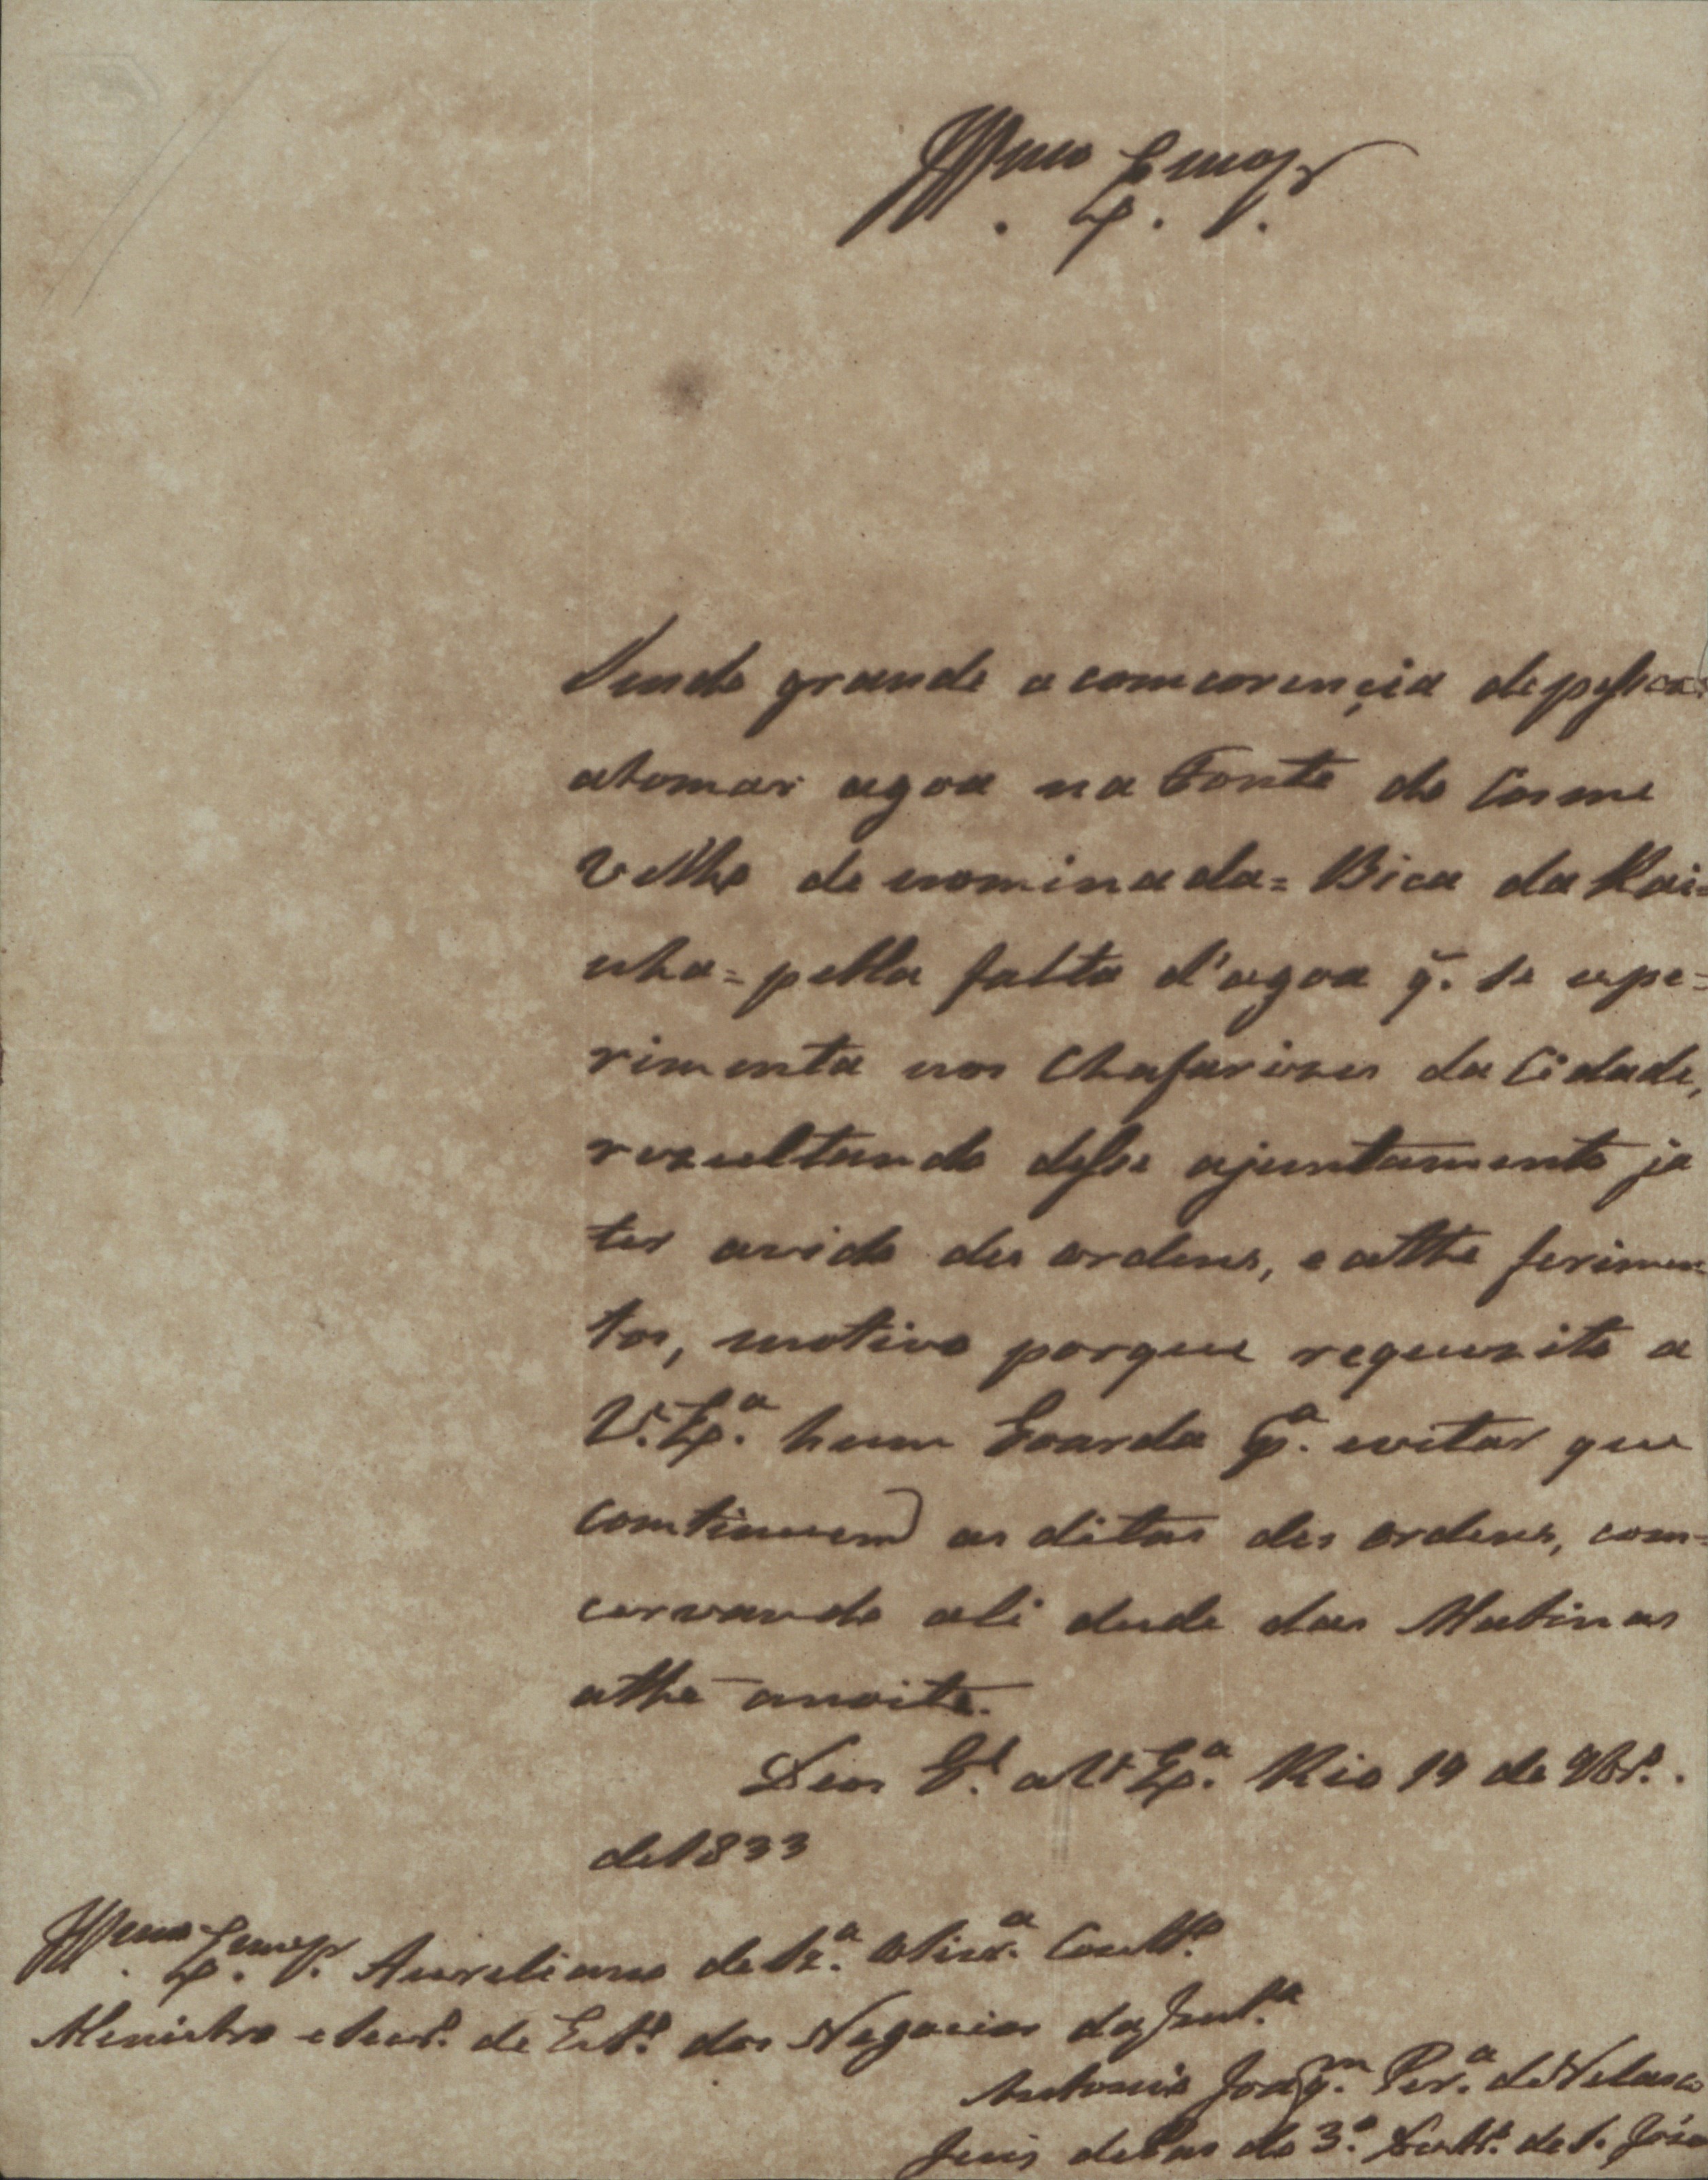 Illmo Exmo Sr.
Sendo grande a comcorençia de pessoas
atomar agoa na Fonte do Cosme
velho denominada = Bica da Rai=
nha = pella falta d'agoa q̃. se espe=
rimenta nos Chafarizes da Cidade,
rezultando desse ajuntamento ja
ter avido des ordens, e athe ferimen
tos, motivo porque requezito a
V. Ex.ª hum Goarda p.ª evitar que
comtinuem as ditas des ordens, com=
cervando ali desde das Matinas
athe anoite.
Deos G.e a V. Ex.ª Rio 19 de 9br.º
de 1833
Illmo Exmo Sr. Aureliano de Sz.ª Olivr.ª Coutt.º
Menistro e Secr.º de Est.º dos Negocios da Just.ª
Antonio Joaq.m Per.ª de Velasco
Juis de Pas do 3.º Destr.º de S. José